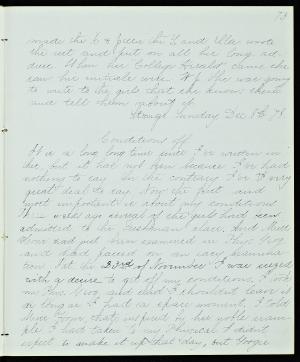 73
made the C & Julia the L and Ella wrote
the rest and put on all his long ad-
dress. When her College Herald came she
saw her initials were W. J. She was going
to write to the girls that she knew there
and tell them about it.
Sunday Dec 8th 78.
Conditions off
It is a long long time since I've written in
this, but it has not been because I've had
nothing to say. On the contrary I've a very
great deal to say. Now the first and
most important is about my conditions
weeks ago several of the girls had been
admitted to the Freshman class. And Miss
had just been examined in Phys. Geog
and had passed on an easy examina-
tion. Sat the 23rd of November I was seized
with a desire to get off my conditions. I took
my Phys. Geog. and said I wouldn't leave it
as long as I had a spare moment, I told
Miss that inspired by her noble exam-
ple I had taken to my Physical I didn't
expect to make it up that day, but